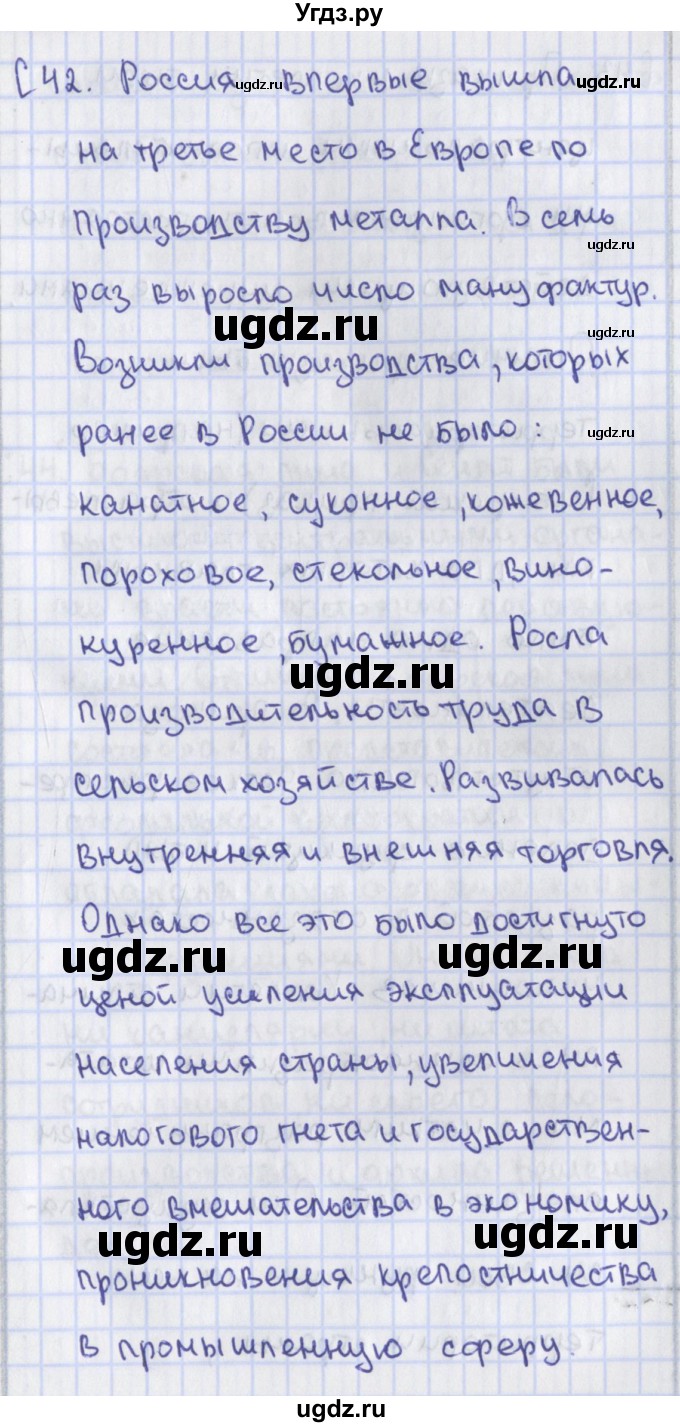 Угдз.ру
[42. Россия впервые вышла
ugdz.ru ugdz.ru
на третье место в Европе по
ugdz.ru
производству металла. В семь
ugdz.ru
раз выросло число мануфактур.
ugdz.ru ugdz.ru
Возникли производства, которых
ранее в России не было:
ugdz.ru
канатное, суконное, кожевенное,
пороховое, стекольное, вино-
куренное, бумажное. Росла
ugdz.ru
производительность труда в
сельском хозяйстве. Развивалась
внутренняя и внешняя торговля.
Однако все это было достигнуто
ugdz.ru ugdz.ru
ценой усиления эксплуатации
населения страны, увеличения
налогового гнета и государствен-
ного вмешательства в экономику,
ugdz.ru ugdz.ru
проникновения крепостничества
в промышленную сферу.
ugdz.ru ugdz.ru